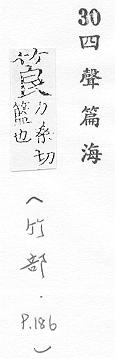 30四聲篇海
筤力桑切
籃也
(竹部.
P.186)